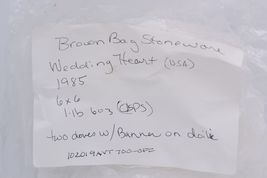 Brown Bag Stoneware
Wedding Heart (USA)
1985
6x6
1 lb 6oz (USPS)
two doves w/ Banner on doilie